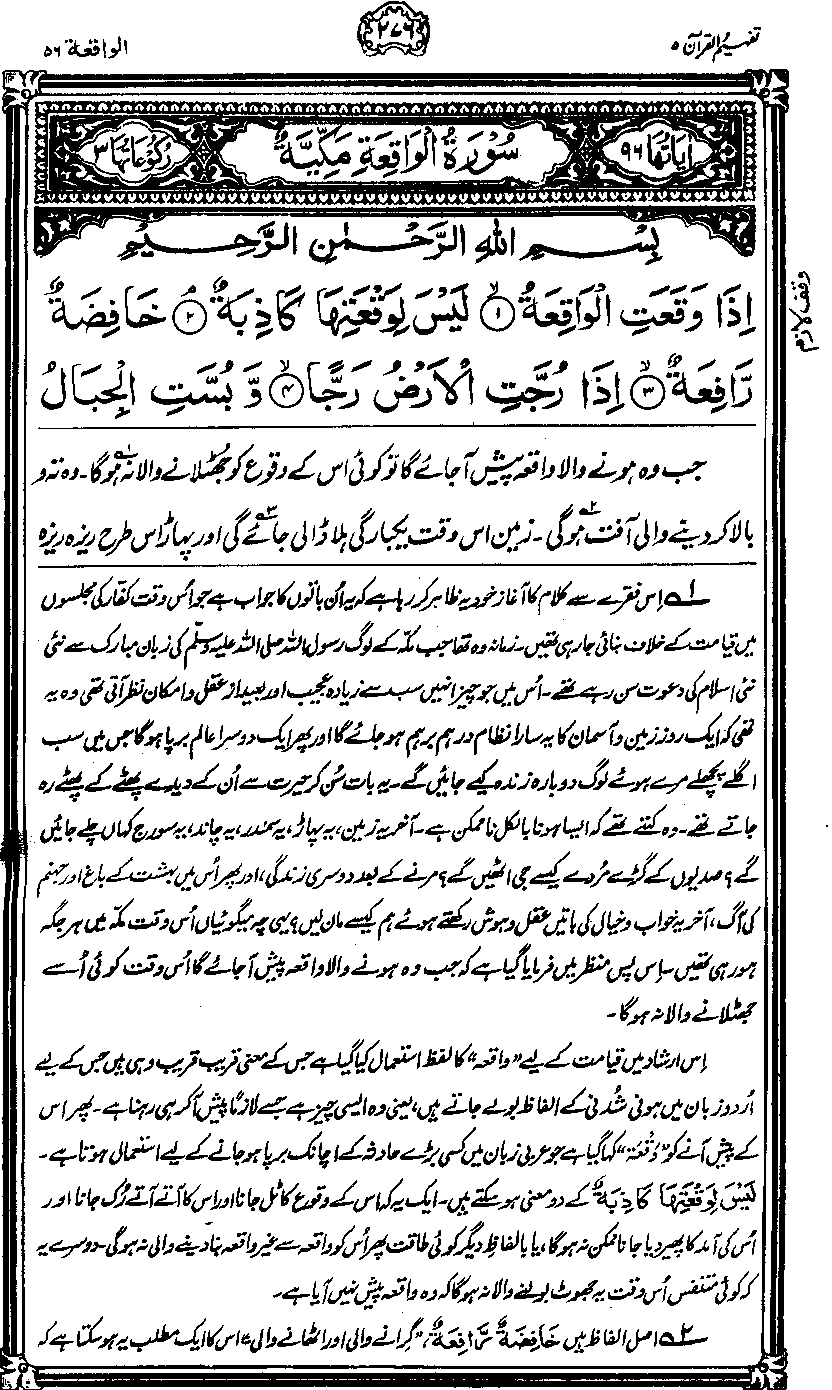 تفہیم القرآن ۵
۲۷۶
الواقعۃ ۵۶
اٰیَاتُهَا ۹۶
سُوْرَةُ الْوَاقِعَةِ مَكِّيَّةٌ
رُكُوْعَاتُهَا ۳
بِسْمِ اللهِ الرَّحْمٰنِ الرَّحِيْمِ
اِذَا وَقَعَتِ الْوَاقِعَةُ ۙ﴿۱﴾ لَيْسَ لِوَقْعَتِهَا كَاذِبَةٌ ۘ﴿۲﴾ خَافِضَةٌ
رَّافِعَةٌ ۙ﴿۳﴾ اِذَا رُجَّتِ الْاَرْضُ رَجًّا ۙ﴿۴﴾ وَّ بُسَّتِ الْجِبَالُ
وقف لازم
جب وہ ہونے والا واقعہ پیش آجائے گا تو کوئی اس کے وقوع کو جھٹلانے والا نہ ہوگا۱۔ وہ تہ و
بالا کر دینے والی آفت ہوگی۲۔ زمین اس وقت یکبارگی ہلا ڈالی جائے گی۳ اور پہاڑ اس طرح ریزہ ریزہ
۱ اِس فقرے سے کلام کا آغاز خود یہ ظاہر کر رہا ہے کہ یہ اُن باتوں کا جواب ہے جو اُس وقت کفار کی مجلسوں
میں قیامت کے خلاف بنائی جا رہی تھیں۔ زمانہ وہ تھا جب مکہ کے لوگ رسول اللہ صلی اللہ علیہ وسلم کی زبان مبارک سے نئی
نئی اسلام کی دعوت سن رہے تھے۔ اُس میں جو چیز انہیں سب سے زیادہ عجیب اور بعید از عقل و امکان نظر آتی تھی وہ یہ
تھی کہ ایک روز زمین و آسمان کا یہ سارا نظام درہم برہم ہو جائے گا اور پھر ایک دوسرا عالم برپا ہوگا جس میں سب
اگلے پچھلے مرے ہوئے لوگ دوبارہ زندہ کیے جائیں گے۔ یہ بات سُن کر حیرت سے اُن کے دیدے پھٹے کے پھٹے رہ
جاتے تھے۔ وہ کہتے تھے کہ ایسا ہونا بالکل ناممکن ہے۔ آخر یہ زمین، یہ پہاڑ، یہ سمندر، یہ چاند، یہ سورج کہاں چلے جائیں
گے؟ صدیوں کے گڑے مُردے کیسے جی اٹھیں گے؟ مرنے کے بعد دوسری زندگی، اور پھر اُس میں بہشت کے باغ اور جہنم
کی آگ، آخر یہ خواب و خیال کی باتیں عقل و ہوش رکھتے ہوئے ہم کیسے مان لیں؟ یہی چہ میگوئیاں اُس وقت مکہ میں ہر جگہ
ہو رہی تھیں۔ اِس پس منظر میں فرمایا گیا ہے کہ جب وہ ہونے والا واقعہ پیش آجائے گا اُس وقت کوئی اُسے
جھٹلانے والا نہ ہوگا۔
اِس ارشاد میں قیامت کے لیے "واقعہ" کا لفظ استعمال کیا گیا ہے جس کے معنی قریب قریب وہی ہیں جس کے لیے
اُردو زبان میں ہونی شُدنی کے الفاظ بولے جاتے ہیں، یعنی وہ ایسی چیز ہے جسے لازمًا پیش آکر ہی رہنا ہے۔ پھر اس
کے پیش آنے کو "وَقْعَۃ" کہا گیا ہے جو عربی زبان میں کسی بڑے حادثہ کے اچانک برپا ہو جانے کے لیے استعمال ہوتا ہے۔
لَيْسَ لِوَقْعَتِهَا كَاذِبَةٌ کے دو معنی ہو سکتے ہیں۔ ایک یہ کہ اس کے وقوع کا ٹل جانا اور اس کا آتے آتے رُک جانا اور
اُس کی آمد کا پھیر دیا جانا ممکن نہ ہوگا، یا بالفاظِ دیگر کوئی طاقت پھر اُس کو واقعہ سے غیر واقعہ بنا دینے والی نہ ہوگی۔ دوسرے یہ
کہ کوئی متنفس اُس وقت یہ جھوٹ بولنے والا نہ ہوگا کہ وہ واقعہ پیش نہیں آیا ہے۔
۲ اصل الفاظ ہیں خَافِضَةٌ رَّافِعَةٌ، "گرانے والی اور اٹھانے والی"، اس کا ایک مطلب یہ ہو سکتا ہے کہ